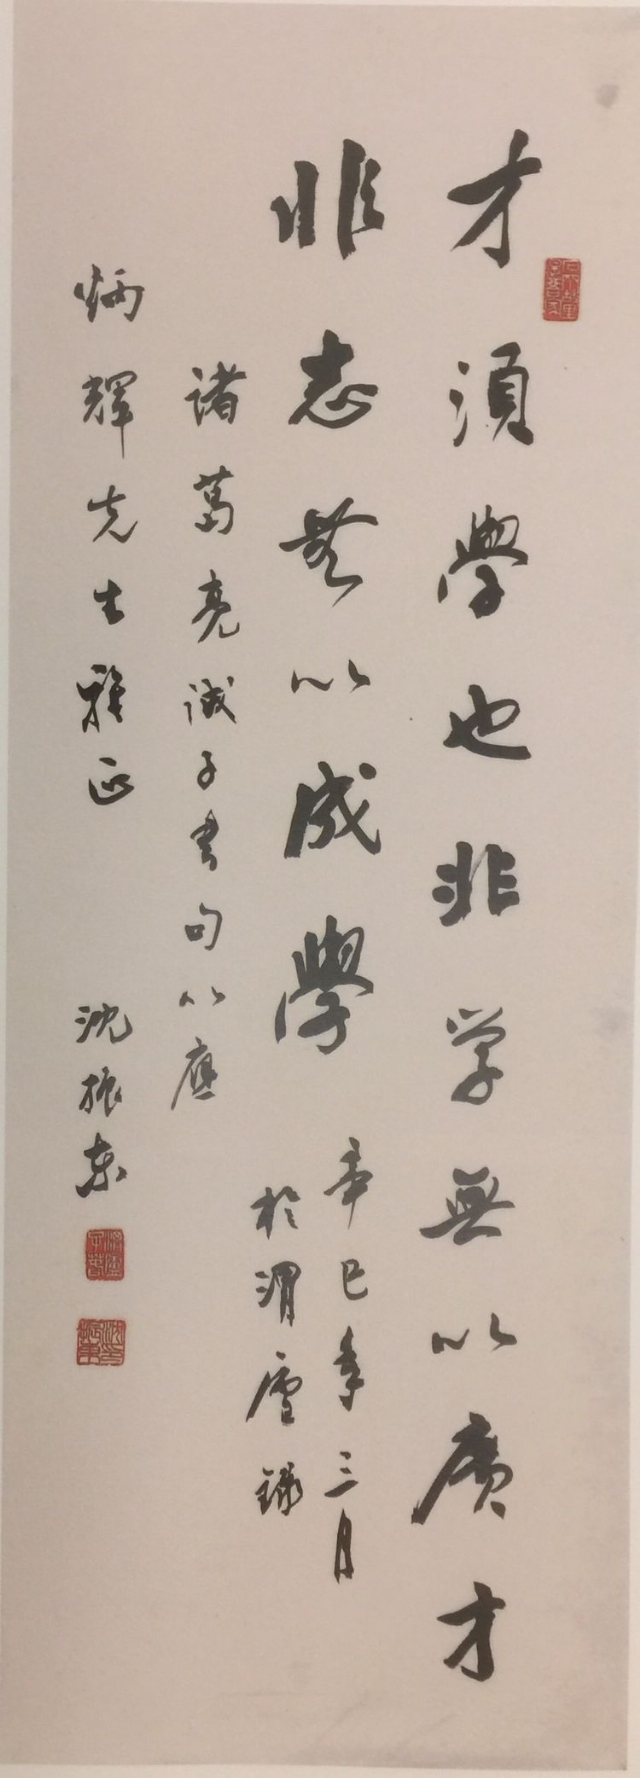 才須學也非学無以廣才
非志無以成學
辛巳年三月
於渭廬錄
諸葛亮誡子書句以應
炳輝先生雅正
沈振東